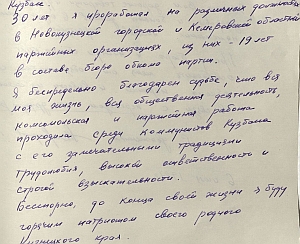 Кузбасе.
30 лет я проработал на различных должностях
в Новокузнецкой городской и Кемеровской областной
партийных организациях, из них - 19 лет
в составе бюро обкома партии.
Я беспредельно благодарен судьбе, что вся
моя жизнь, вся общественная деятельность,
комсомольская и партийная работа
проходила среди коммунистов Кузбасса
с его замечательными традициями
трудолюбия, высокой ответственности и
строгой взыскательности.
Бесспорно, до конца своей жизни я буду
горячим патриотом своего родного
Кузнецкого края.